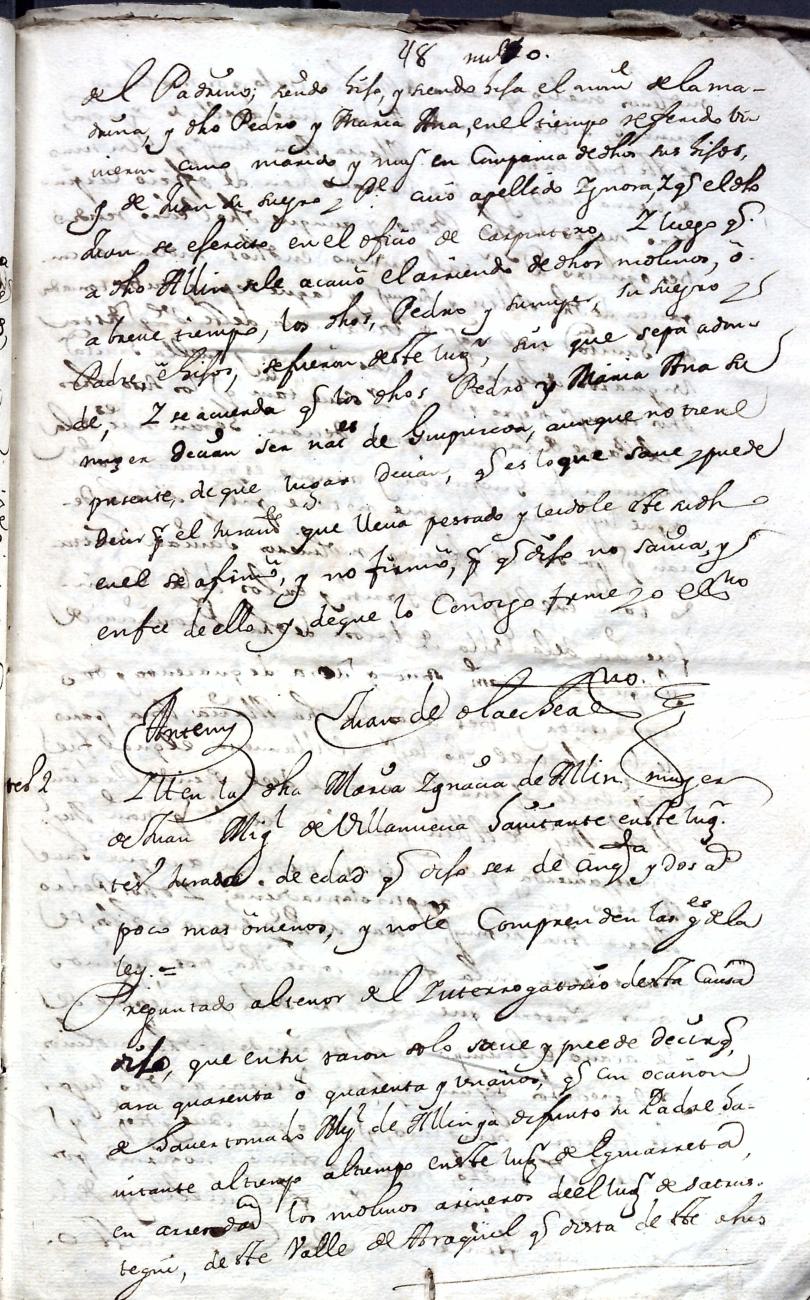 48
del Padrino; siendo hijo, y siendo hija el nom.e de la ma-
drina, y dho Pedro y Maria Ana, en el tiempo referido bi
vieron como marido y mug.r en Compania de dhos sus hijos,
y de Juan su suegro y P.e cuio apellido Ignora, Y q.e el dho
Juan se exercito en el oficio de Carpintero, Y luego q.e
a dho Allin se le acavó el arriendo de dhos molinos, ó
a breve tiempo, los dhos, Pedro y su muger, su suegro y
Padre é hijos, se fueron deste lug.r, sin que sepa adon-
de, Y se acuerda q.e los dhos Pedro y Maria Ana su
muger decian ser nat.es de Guipuzcoa, aunque no tiene
presente, de que lugar decian, q.e es lo que save y puede
decir p.r el juram.to que lleva prestado y leidole este su dho
en el se afirmó, y no firmó, p.r q.e dijo no savia, y
en fee de ello y de que lo Conozco firme yo el ess.no
Antemi Juan de olaechea ess.no
tes.o 2
Itten la dha Maria Ignacia de Allin muger
de Juan Mig.l de Villanueva havitante en este lug.r
tes.o jurada de edad q.e dijo ser de cinq.ta y dos a.s
poco mas ó menos, y no le Comprenden las g.es de la
ley. =
Preguntado al tenor del Interrogatorio desta Causa
dijo, que en su razon solo save y puede decir q.e
ara quarenta ó quarenta y un años, q.e con ocasion
de haver tomado Mig.l de Allin ya difunto su Padre ha-
vitante al tiempo al tiempo en este lug.r de Eguiarreta
en arrendaz.on los molinos arineros de el lug.r de Satrus-
tegui, de este Valle de Araquil q.e dista de este ohos